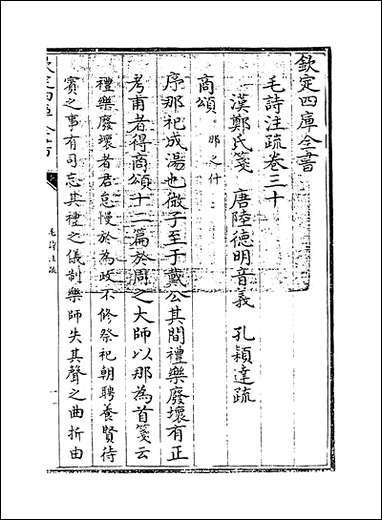 欽定四庫全書
毛詩注疏卷三十
漢鄭氏箋　唐陸德明音義　孔穎達疏
商頌　那之什
序那祀成湯也微子至于戴公其間禮樂廢壞有正
考甫者得商頌十二篇於周之大師以那為首箋云
禮樂廢壞者君怠慢於為政不修祭祀朝聘養賢待
賓之事有司忘其禮之儀制樂師失其聲之曲折由
欽定四庫全書
毛詩注疏
一